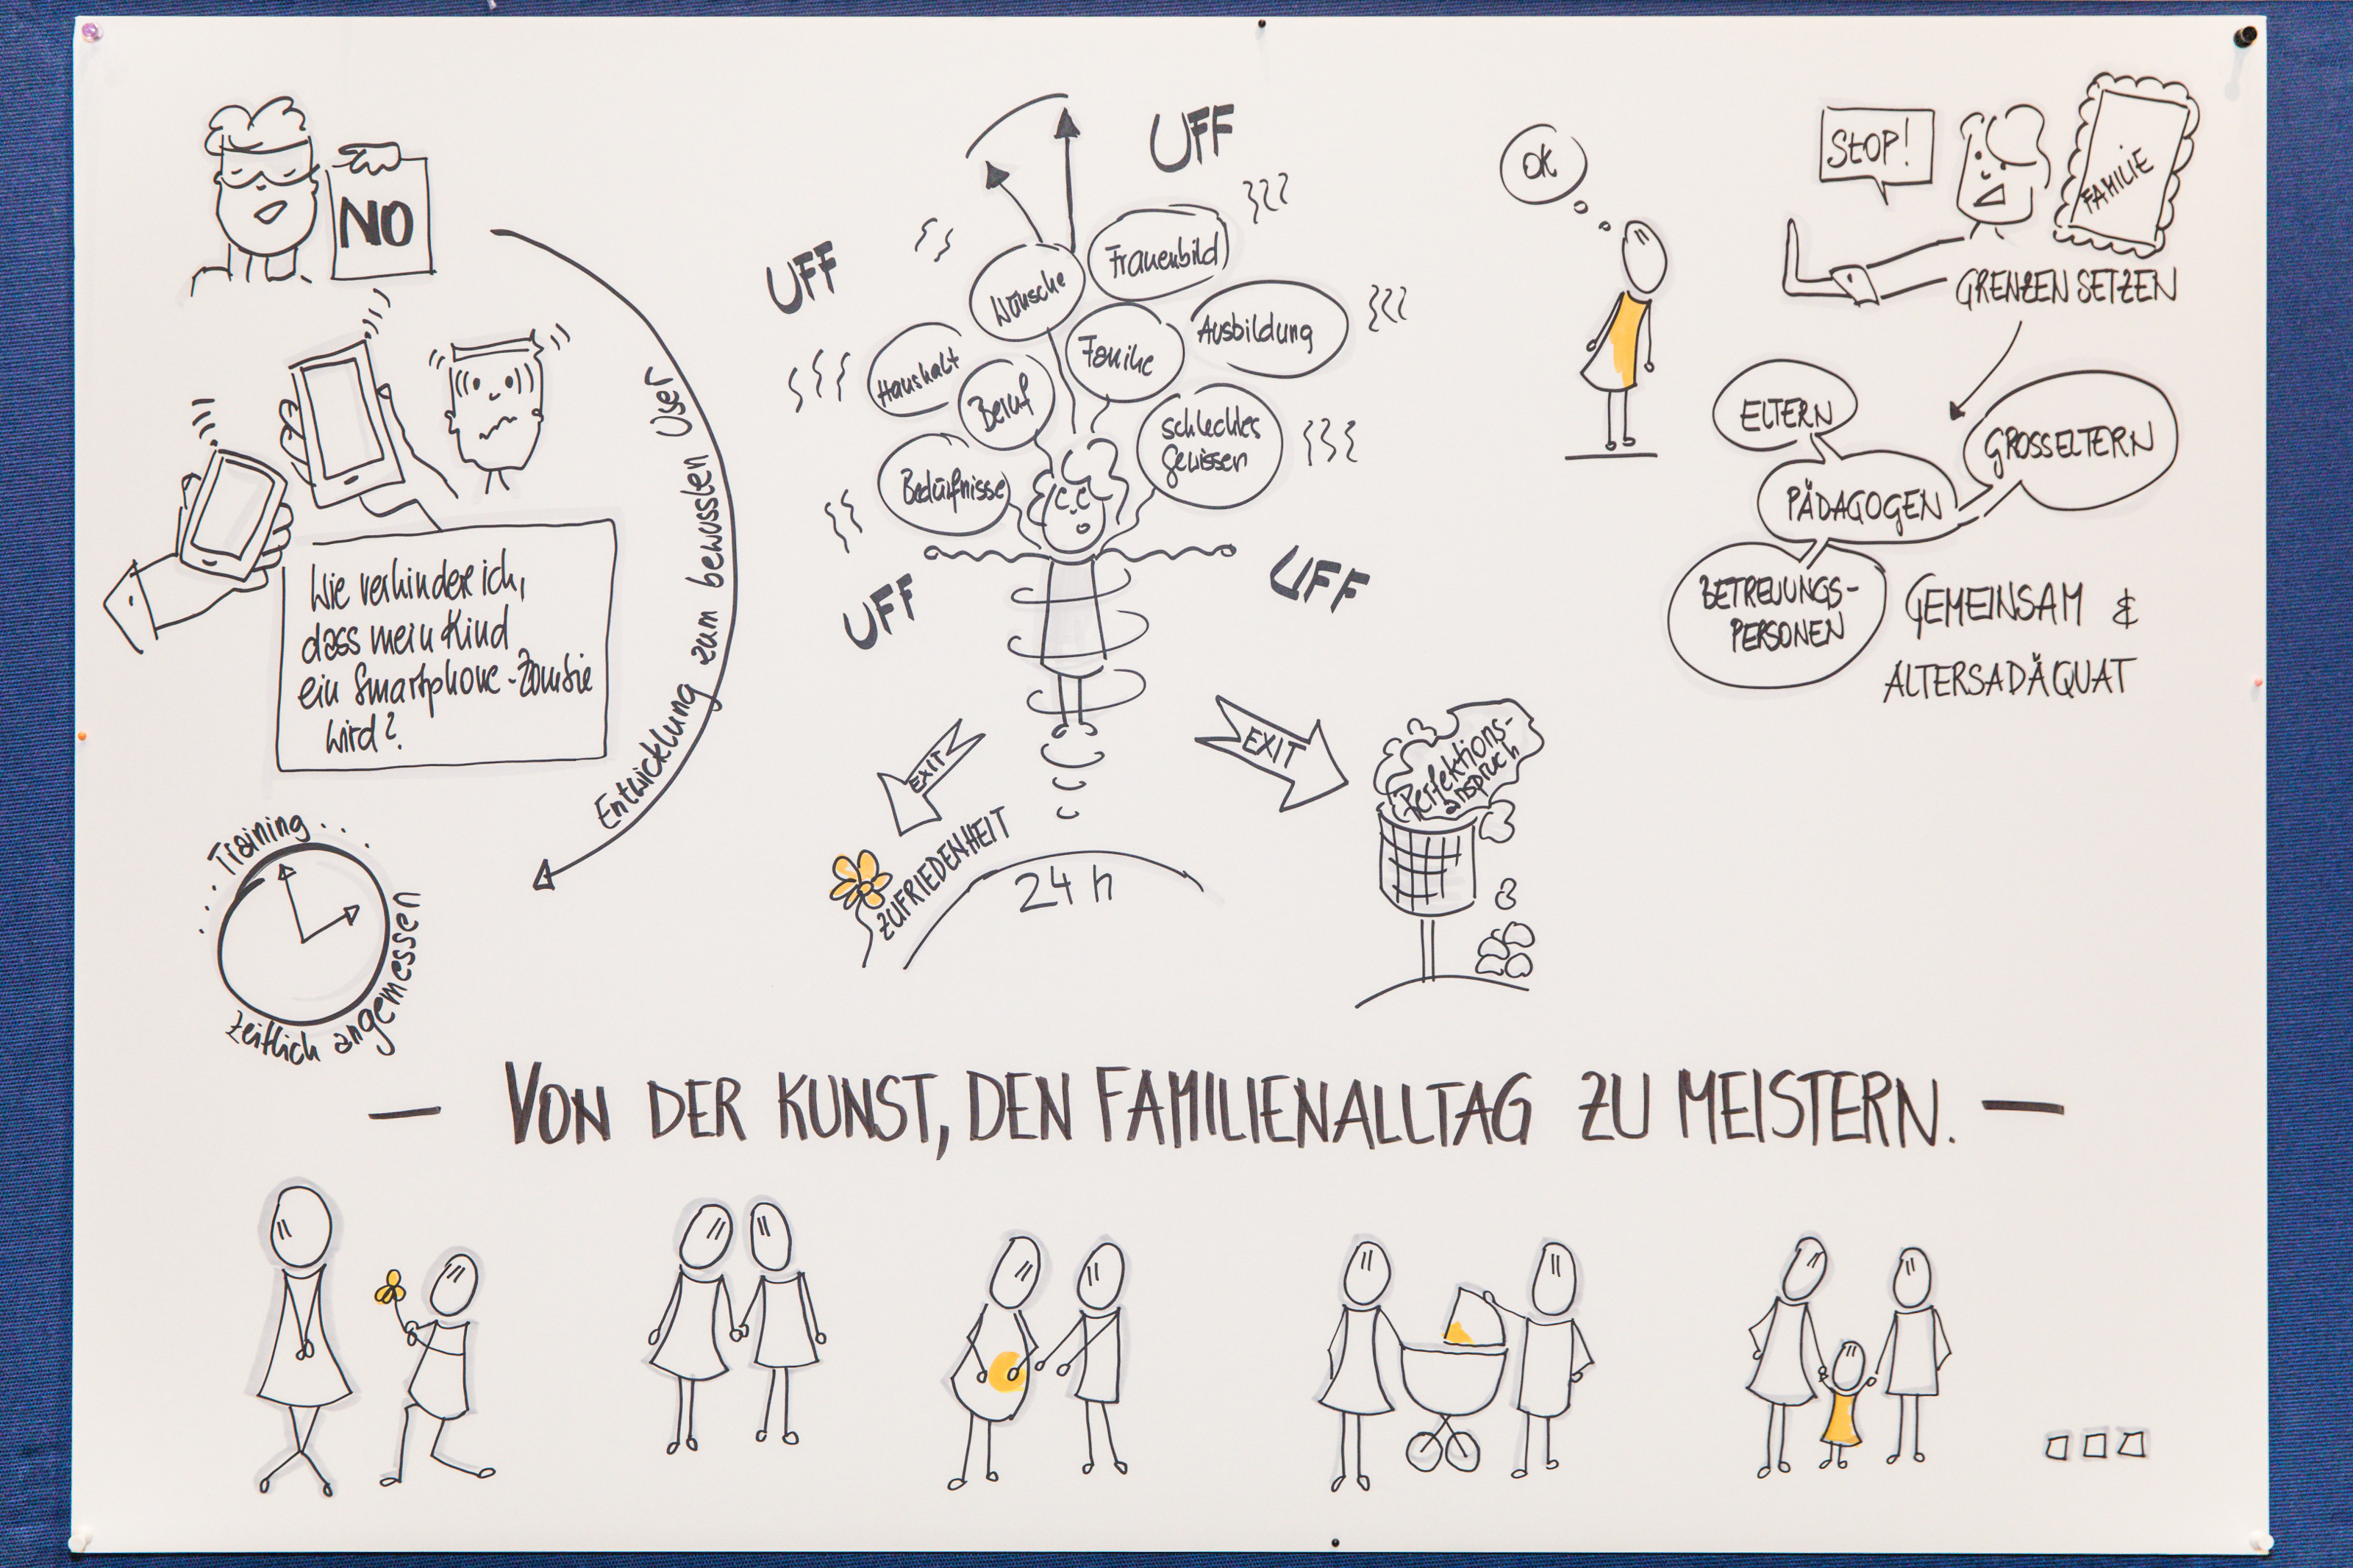 NO
Wie verhindere ich,
dass mein Kind
ein Smartphone-Zombie
wird?
Entwicklung zum bewussten User
Training
zeitlich angemessen
UFF
UFF
UFF
UFF
Wünsche
Frauenbild
Haushalt
Beruf
Familie
Ausbildung
Bedürfnisse
schlechtes
Gewissen
EXIT
ZUFRIEDENHEIT
24 h
EXIT
Perfektions-
anspruch
OK
STOP!
FAMILIE
GRENZEN SETZEN
ELTERN
GROSSELTERN
PÄDAGOGEN
BETREUUNGS-
PERSONEN
GEMEINSAM &
ALTERSADÄQUAT
— VON DER KUNST, DEN FAMILIENALLTAG ZU MEISTERN. —